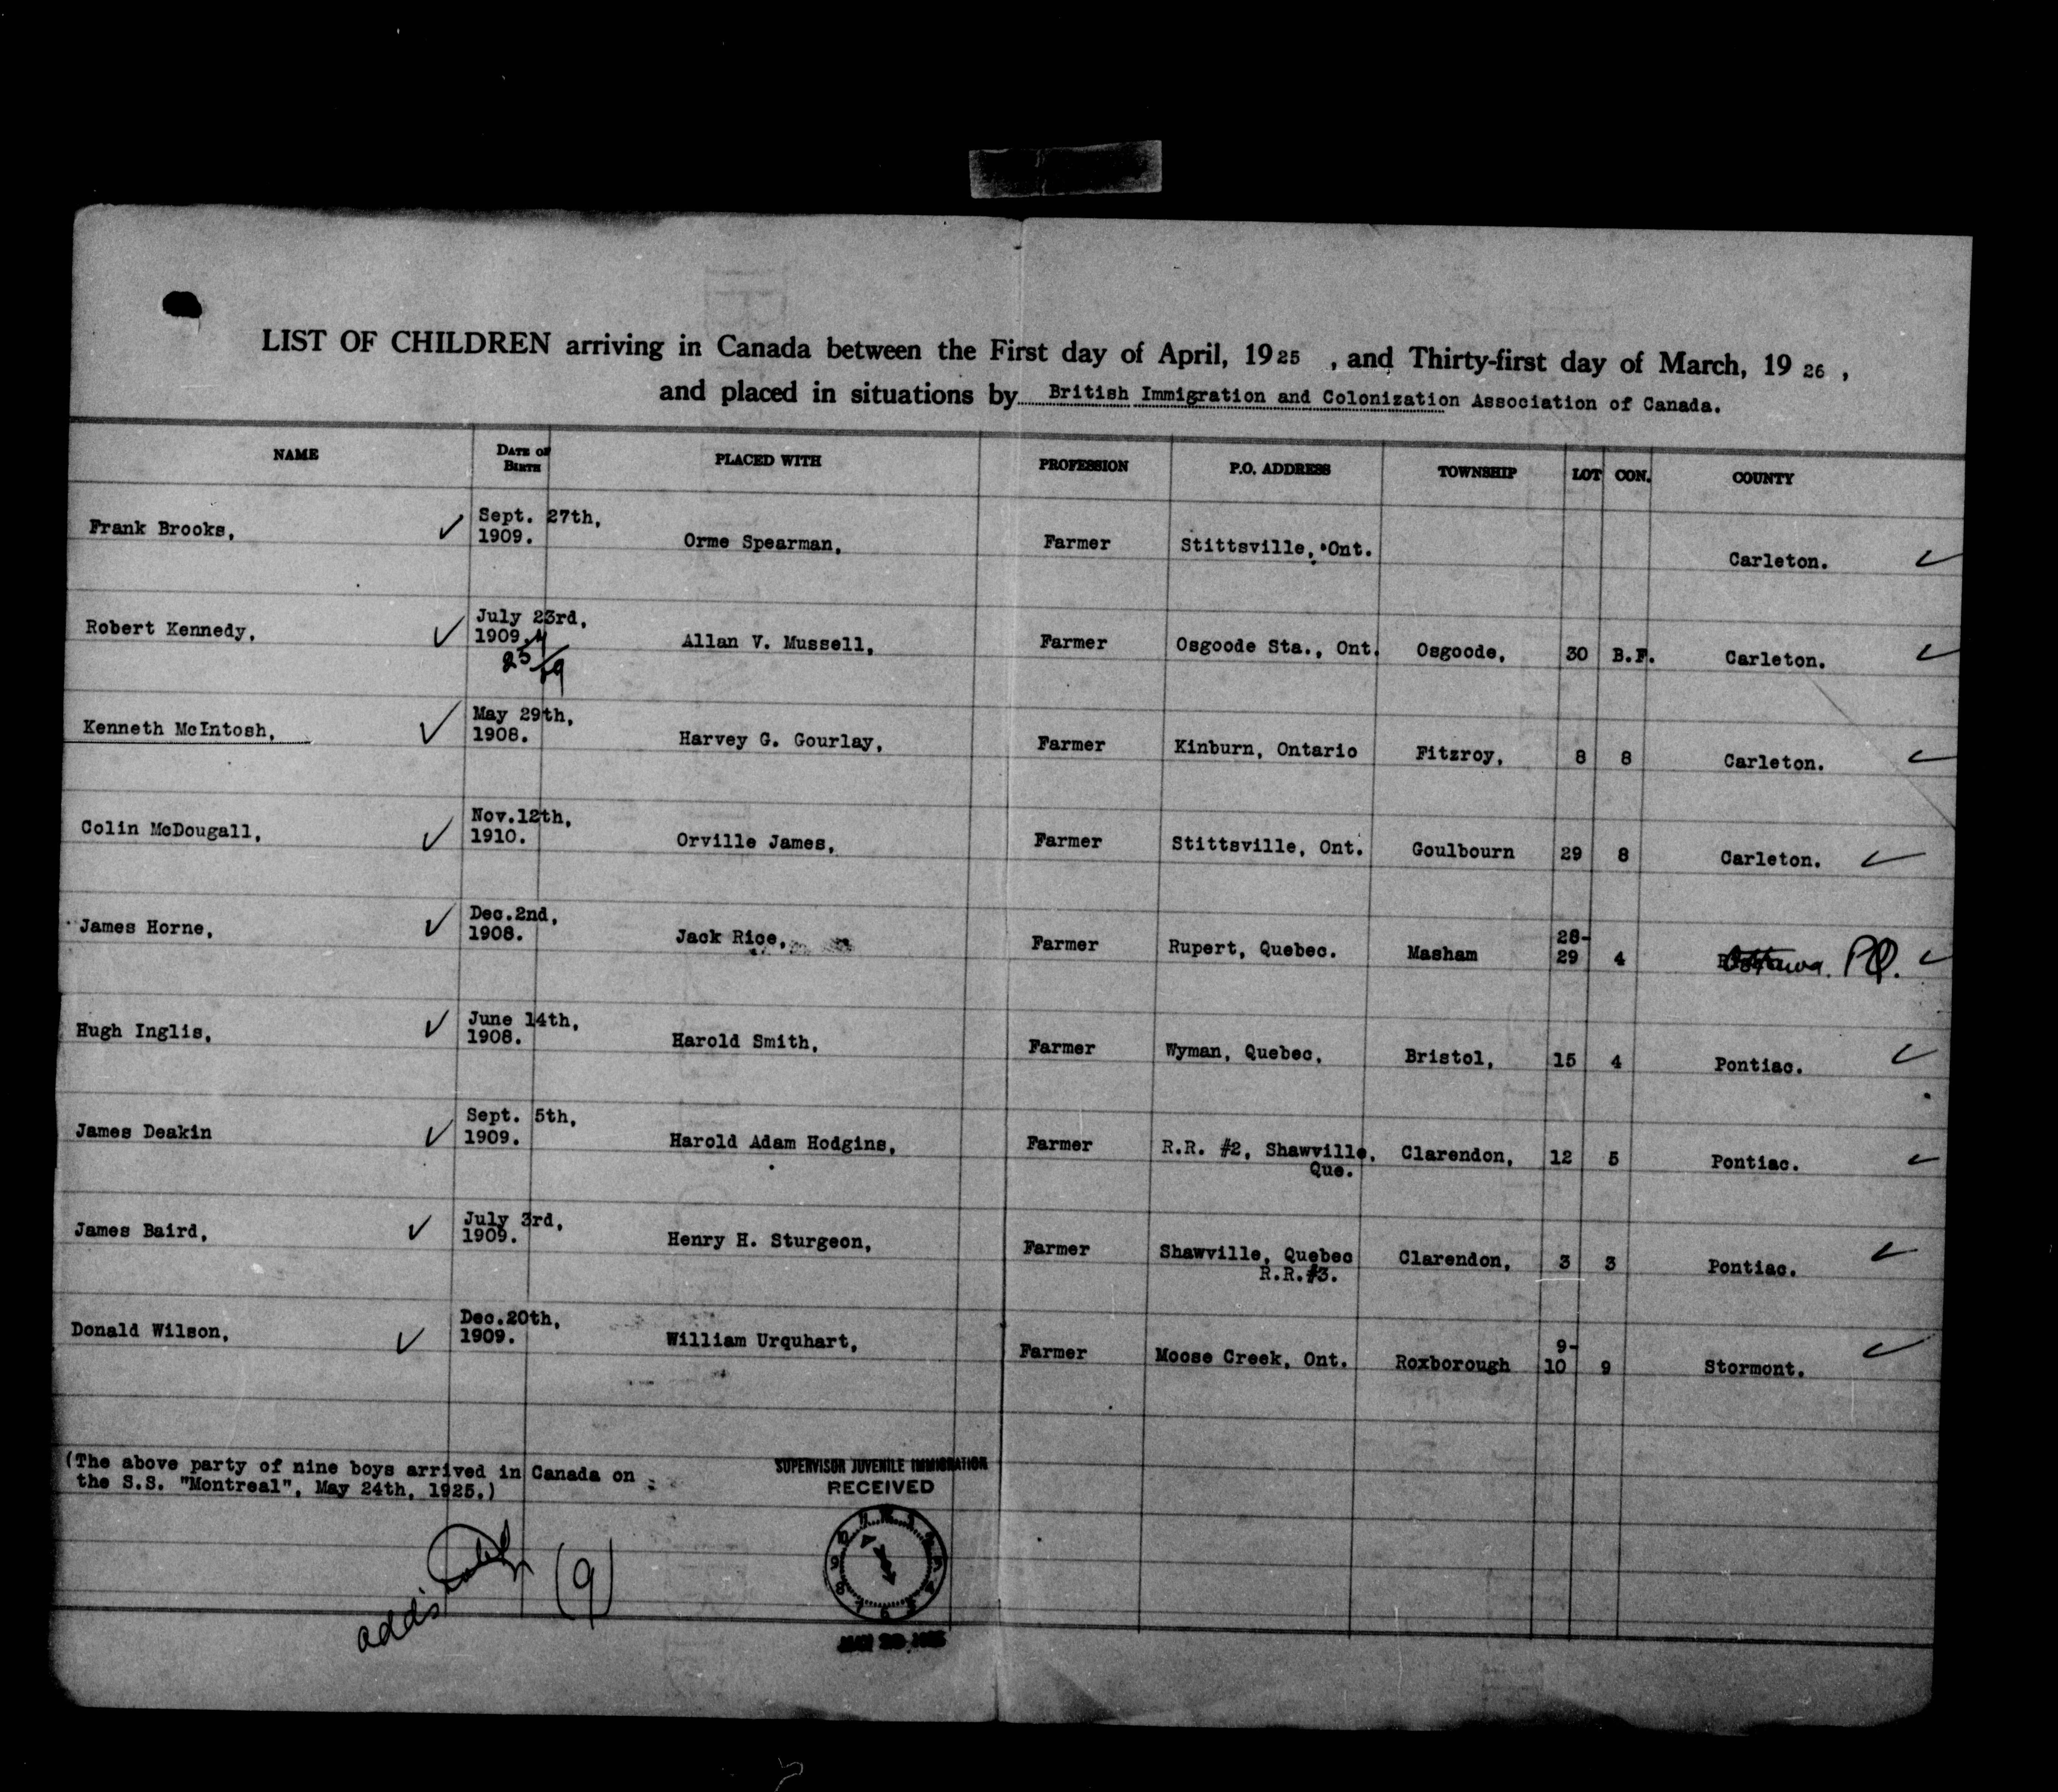 LIST OF CHILDREN arriving in Canada between the First day of April, 1925 , and Thirty-first day of March, 1926 ,
and placed in situations by British Immigration and Colonization Association of Canada.
NAME DATE OF BIRTH PLACED WITH PROFESSION P.O. ADDRESS TOWNSHIP LOT CON. COUNTY
Sept. 27th,
Frank Brooks, ✓ 1909. Orme Spearman, Farmer Stittsville, Ont. Carleton. ✓
July 23rd,
Robert Kennedy, ✓ 1909. Allan V. Mussell, Farmer Osgoode Sta., Ont. Osgoode, 30 B.F. Carleton. ✓
May 29th,
Kenneth McIntosh, ✓ 1908. Harvey G. Gourlay, Farmer Kinburn, Ontario Fitzroy, 8 8 Carleton. ✓
Nov.12th,
Colin McDougall, ✓ 1910. Orville James, Farmer Stittsville, Ont. Goulbourn 29 8 Carleton. ✓
Dec.2nd, 28-
James Horne, ✓ 1908. Jack Rice, Farmer Rupert, Quebec. Masham 29 4 Ottawa. PQ. ✓
June 14th,
Hugh Inglis, ✓ 1908. Harold Smith, Farmer Wyman, Quebec, Bristol, 15 4 Pontiac. ✓
Sept. 5th,
James Deakin ✓ 1909. Harold Adam Hodgins, Farmer R.R. #2, Shawville, Clarendon, 12 5 Pontiac. ✓
Que.
July 3rd,
James Baird, ✓ 1909. Henry H. Sturgeon, Farmer Shawville, Quebec Clarendon, 3 3 Pontiac. ✓
R.R.#3.
Dec.20th, 9-
Donald Wilson, ✓ 1909. William Urquhart, Farmer Moose Creek, Ont. Roxborough 10 9 Stormont. ✓
(The above party of nine boys arrived in Canada on
the S.S. "Montreal", May 24th, 1925.)
SUPERVISOR JUVENILE IMMIGRATION
RECEIVED
(9)